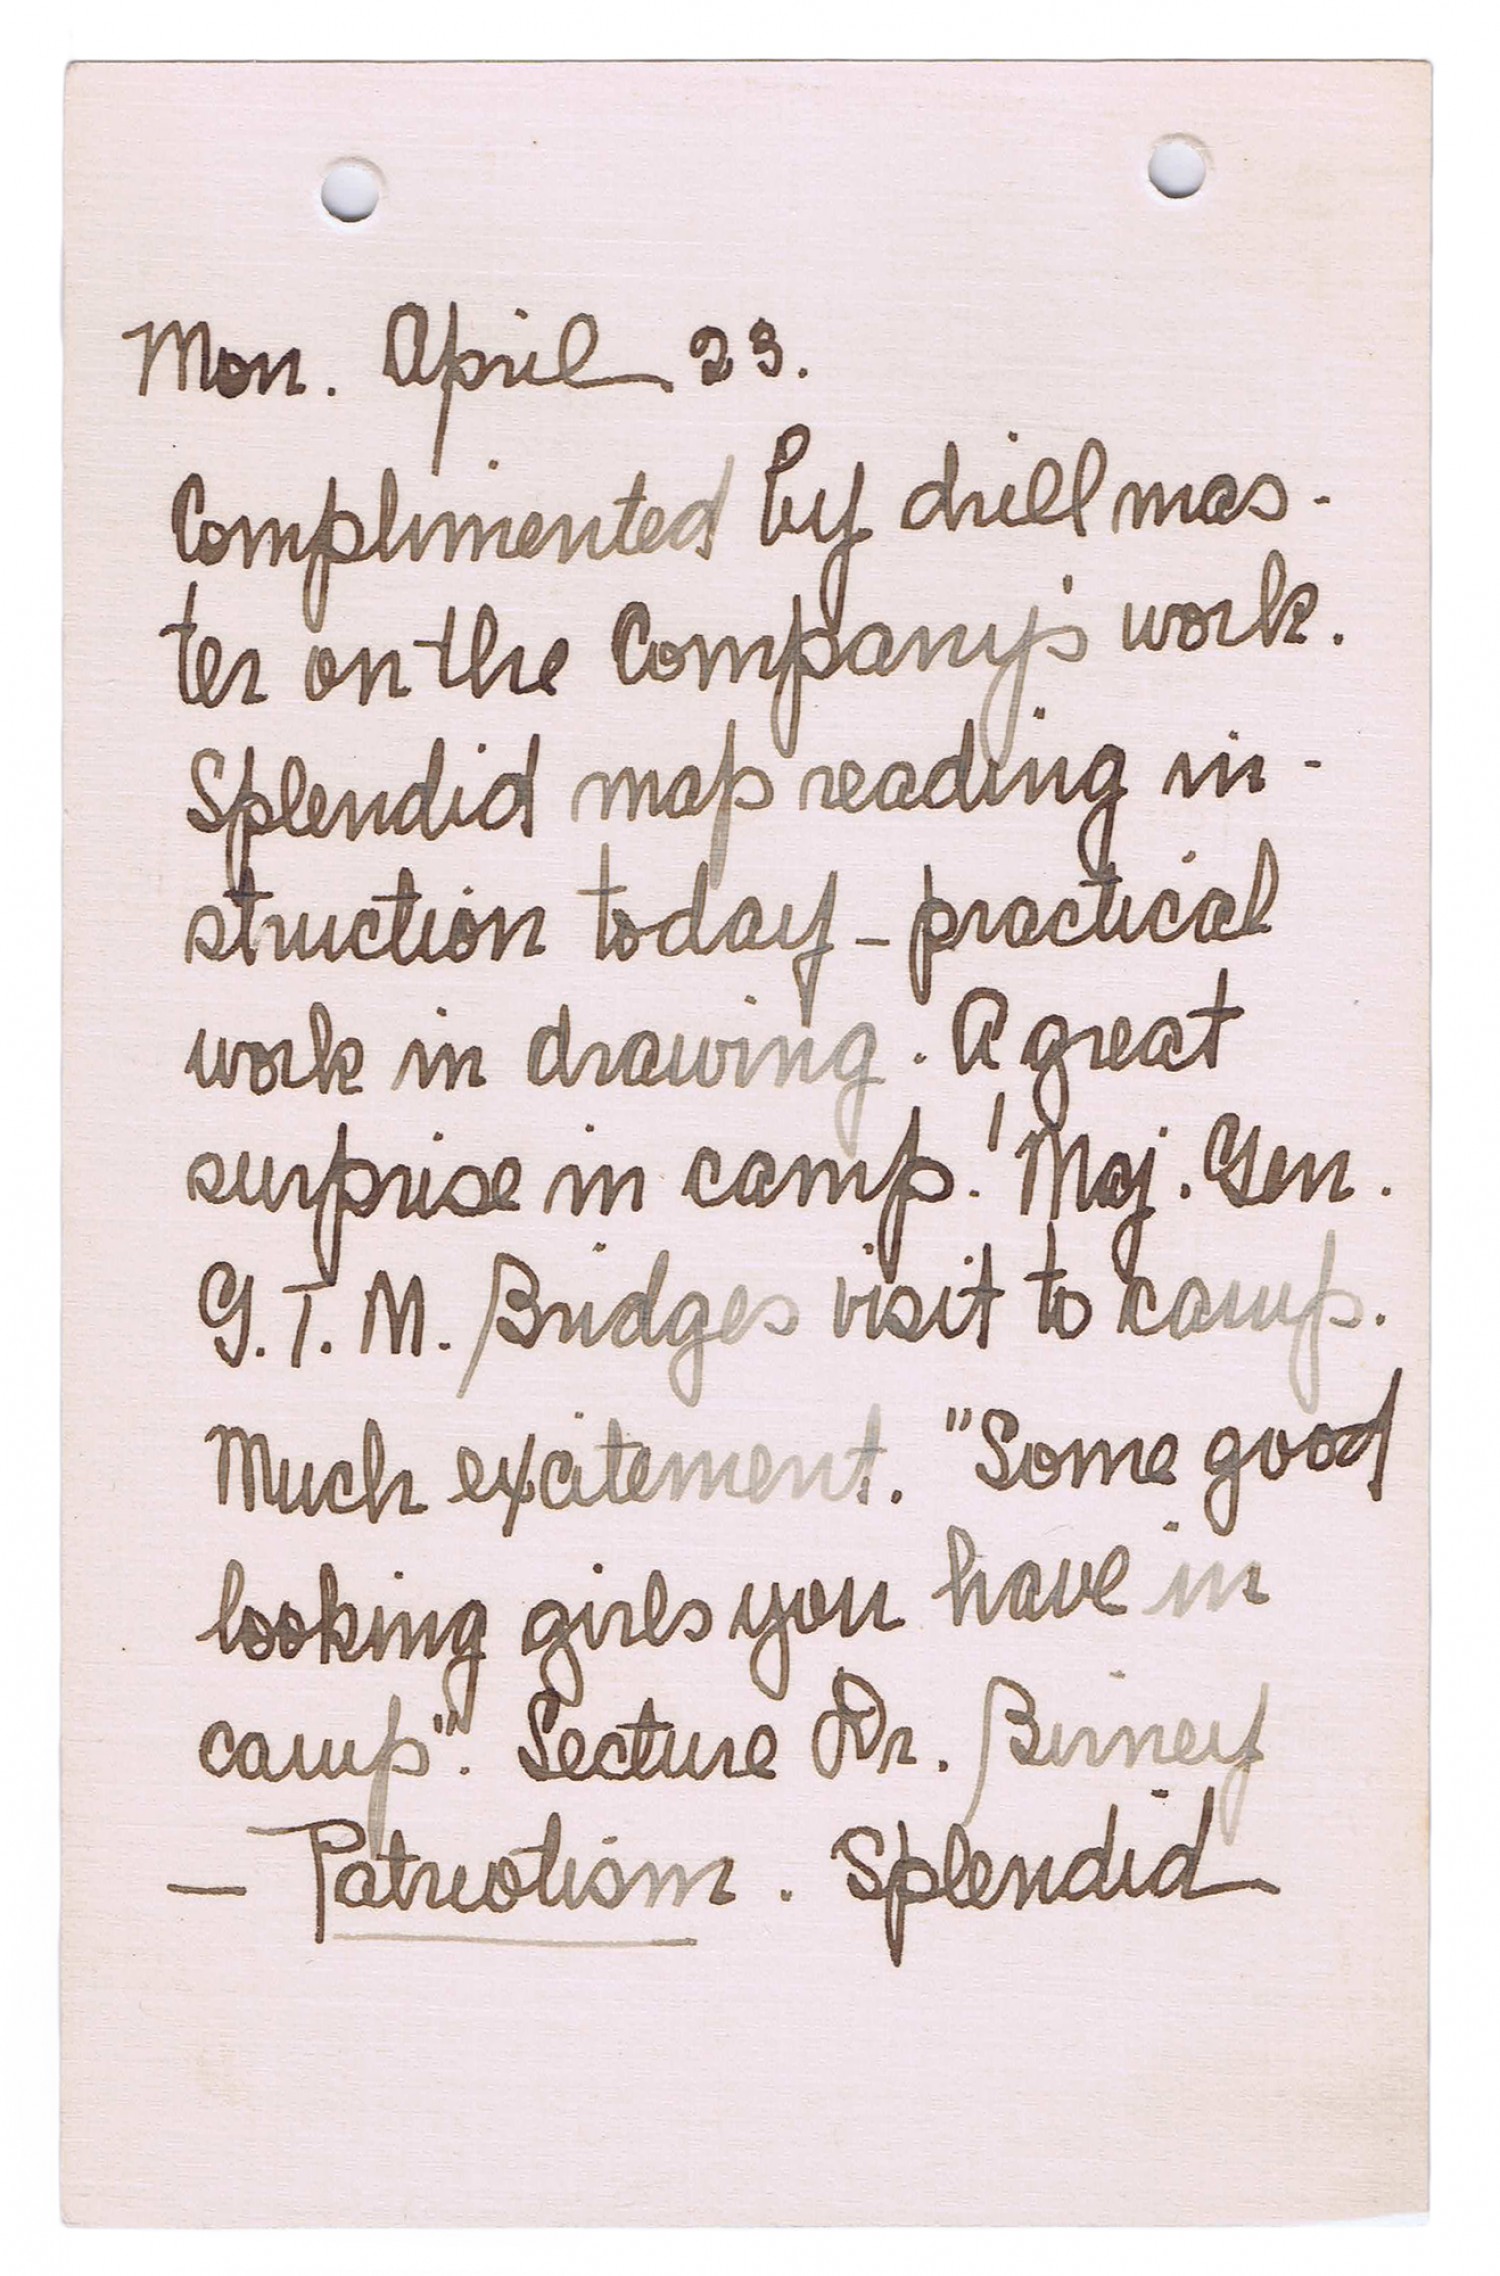 Mon. April 23.
Complimented by drill mas-
ter on the Company's work.
Splendid map reading in-
struction today - practical
work in drawing. A great
surprise in camp! Maj. Gen.
G. T. M. Bridges visit to camp.
Much excitement. "Some good
looking girls you have in
camp". Lecture Dr. Birney
— Patriotism. Splendid